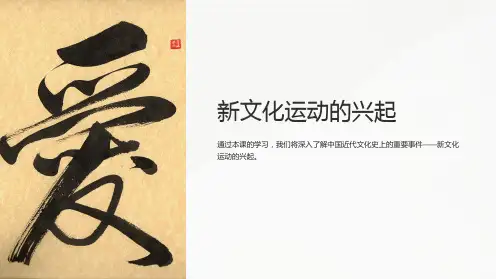 愛
新文化运动的兴起
通过本课的学习，我们将深入了解中国近代文化史上的重要事件——新文化
运动的兴起。